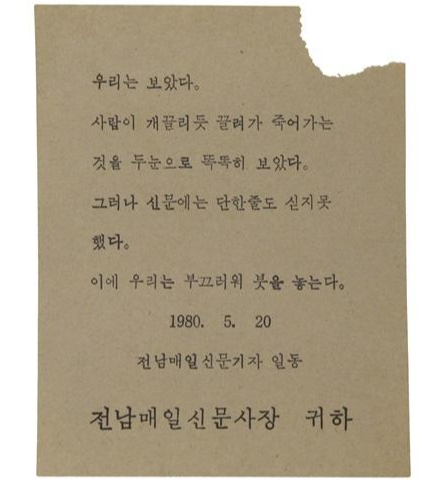 우리는 보았다.
사람이 개끌리듯 끌려가 죽어가는
것을 두눈으로 똑똑히 보았다.
그러나 신문에는 단한줄도 싣지못
했다.
이에 우리는 부끄러워 붓을 놓는다.
1980. 5. 20
전남매일신문기자 일동
전남매일신문사장 귀하